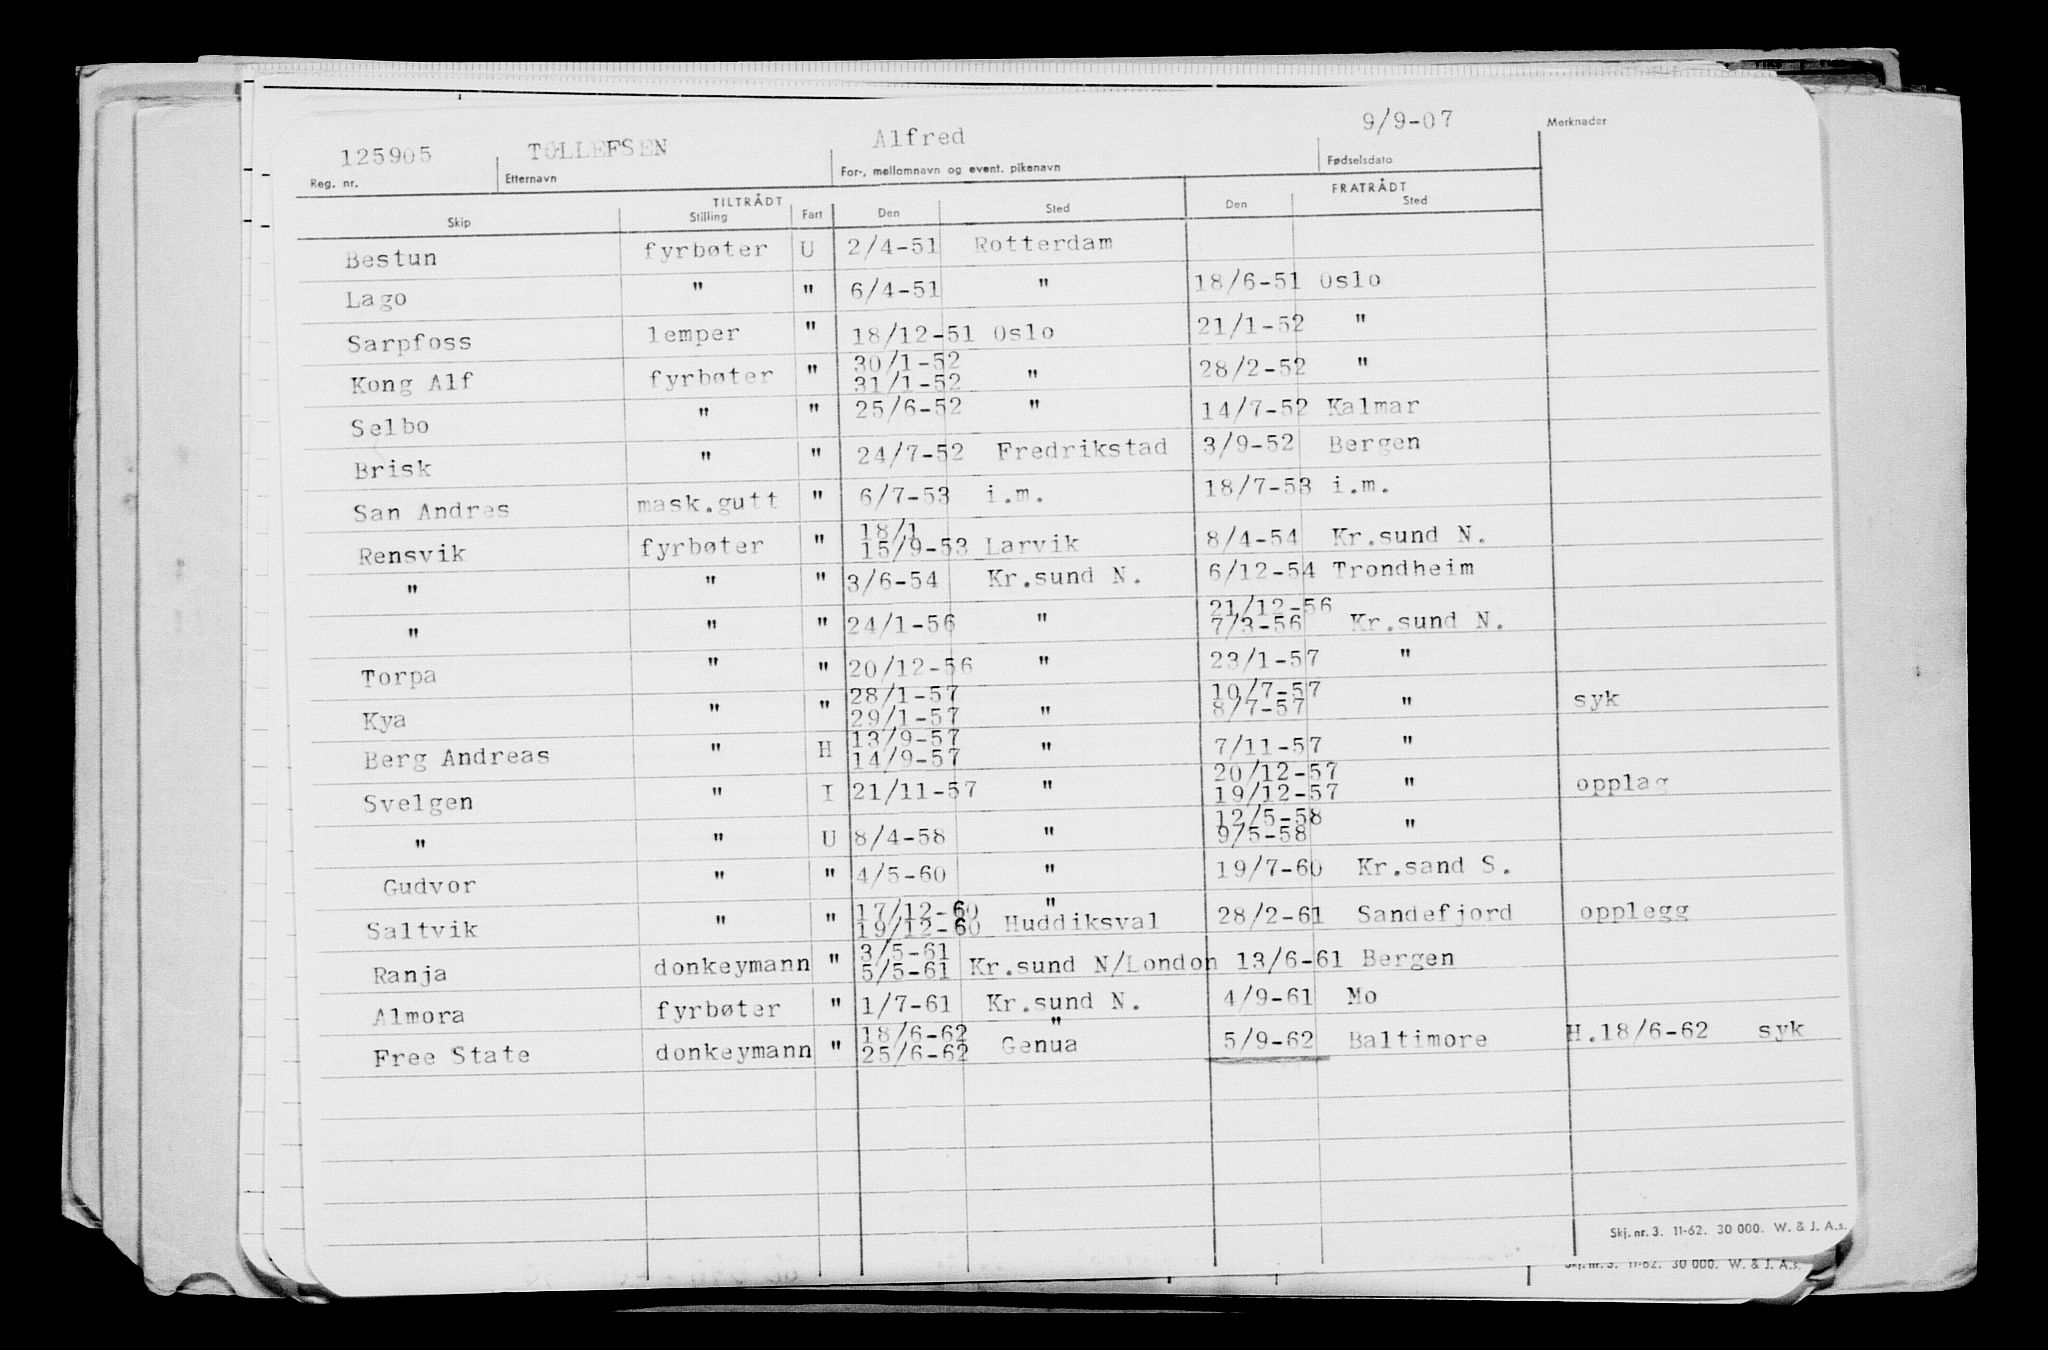 125905 TOLLEFSEN Alfred 9/9-07 Merknader
Reg. nr. Etternavn For-, mellomnavn og event. pikenavn Fødselsdato
TILTRÅDT FRATRÅDT
Skip Stilling Fart Den Sted Den Sted
Bestun fyrbøter U 2/4-51 Rotterdam
Lago " " 6/4-51 " 18/6-51 Oslo
Sarpfoss lemper " 18/12-51 Oslo 21/1-52 "
30/1-52
Kong Alf fyrbøter " 31/1-52 " 28/2-52 "
Selbo " " 25/6-52 " 14/7-52 Kalmar
Brisk " " 24/7-52 Fredrikstad 3/9-52 Bergen
San Andres mask.gutt " 6/7-53 i.m. 18/7-53 i.m.
18/1
Rensvik fyrbøter " 15/9-53 Larvik 8/4-54 Kr.sund N.
" " " 3/6-54 Kr.sund N. 6/12-54 Trondheim
21/12-56
" " " 24/1-56 " 7/3-56 Kr.sund N.
Torpa " " 20/12-56 " 23/1-57 "
28/1-57 10/7-57
Kya " " 29/1-57 " 8/7-57 " syk
13/9-57
Berg Andreas " H 14/9-57 " 7/11-57 "
20/12-57
Svelgen " I 21/11-57 " 19/12-57 " opplag
12/5-58
" " U 8/4-58 " 9/5-58 "
Gudvor " " 4/5-60 " 19/7-60 Kr.sand S.
17/12-60 "
Saltvik " " 19/12-60 Huddiksval 28/2-61 Sandefjord opplegg
3/5-61
Ranja donkeymann " 5/5-61 Kr.sund N/London 13/6-61 Bergen
Almora fyrbøter " 1/7-61 Kr.sund N. 4/9-61 Mo
18/6-62 "
Free State donkeymann " 25/6-62 Genua 5/9-62 Baltimore H.18/6-62 syk
Skj. nr. 3. 11-62. 30 000. W. & J. A.s.
Skj. nr. 3. 11-62. 30 000. W. & J. A.s.